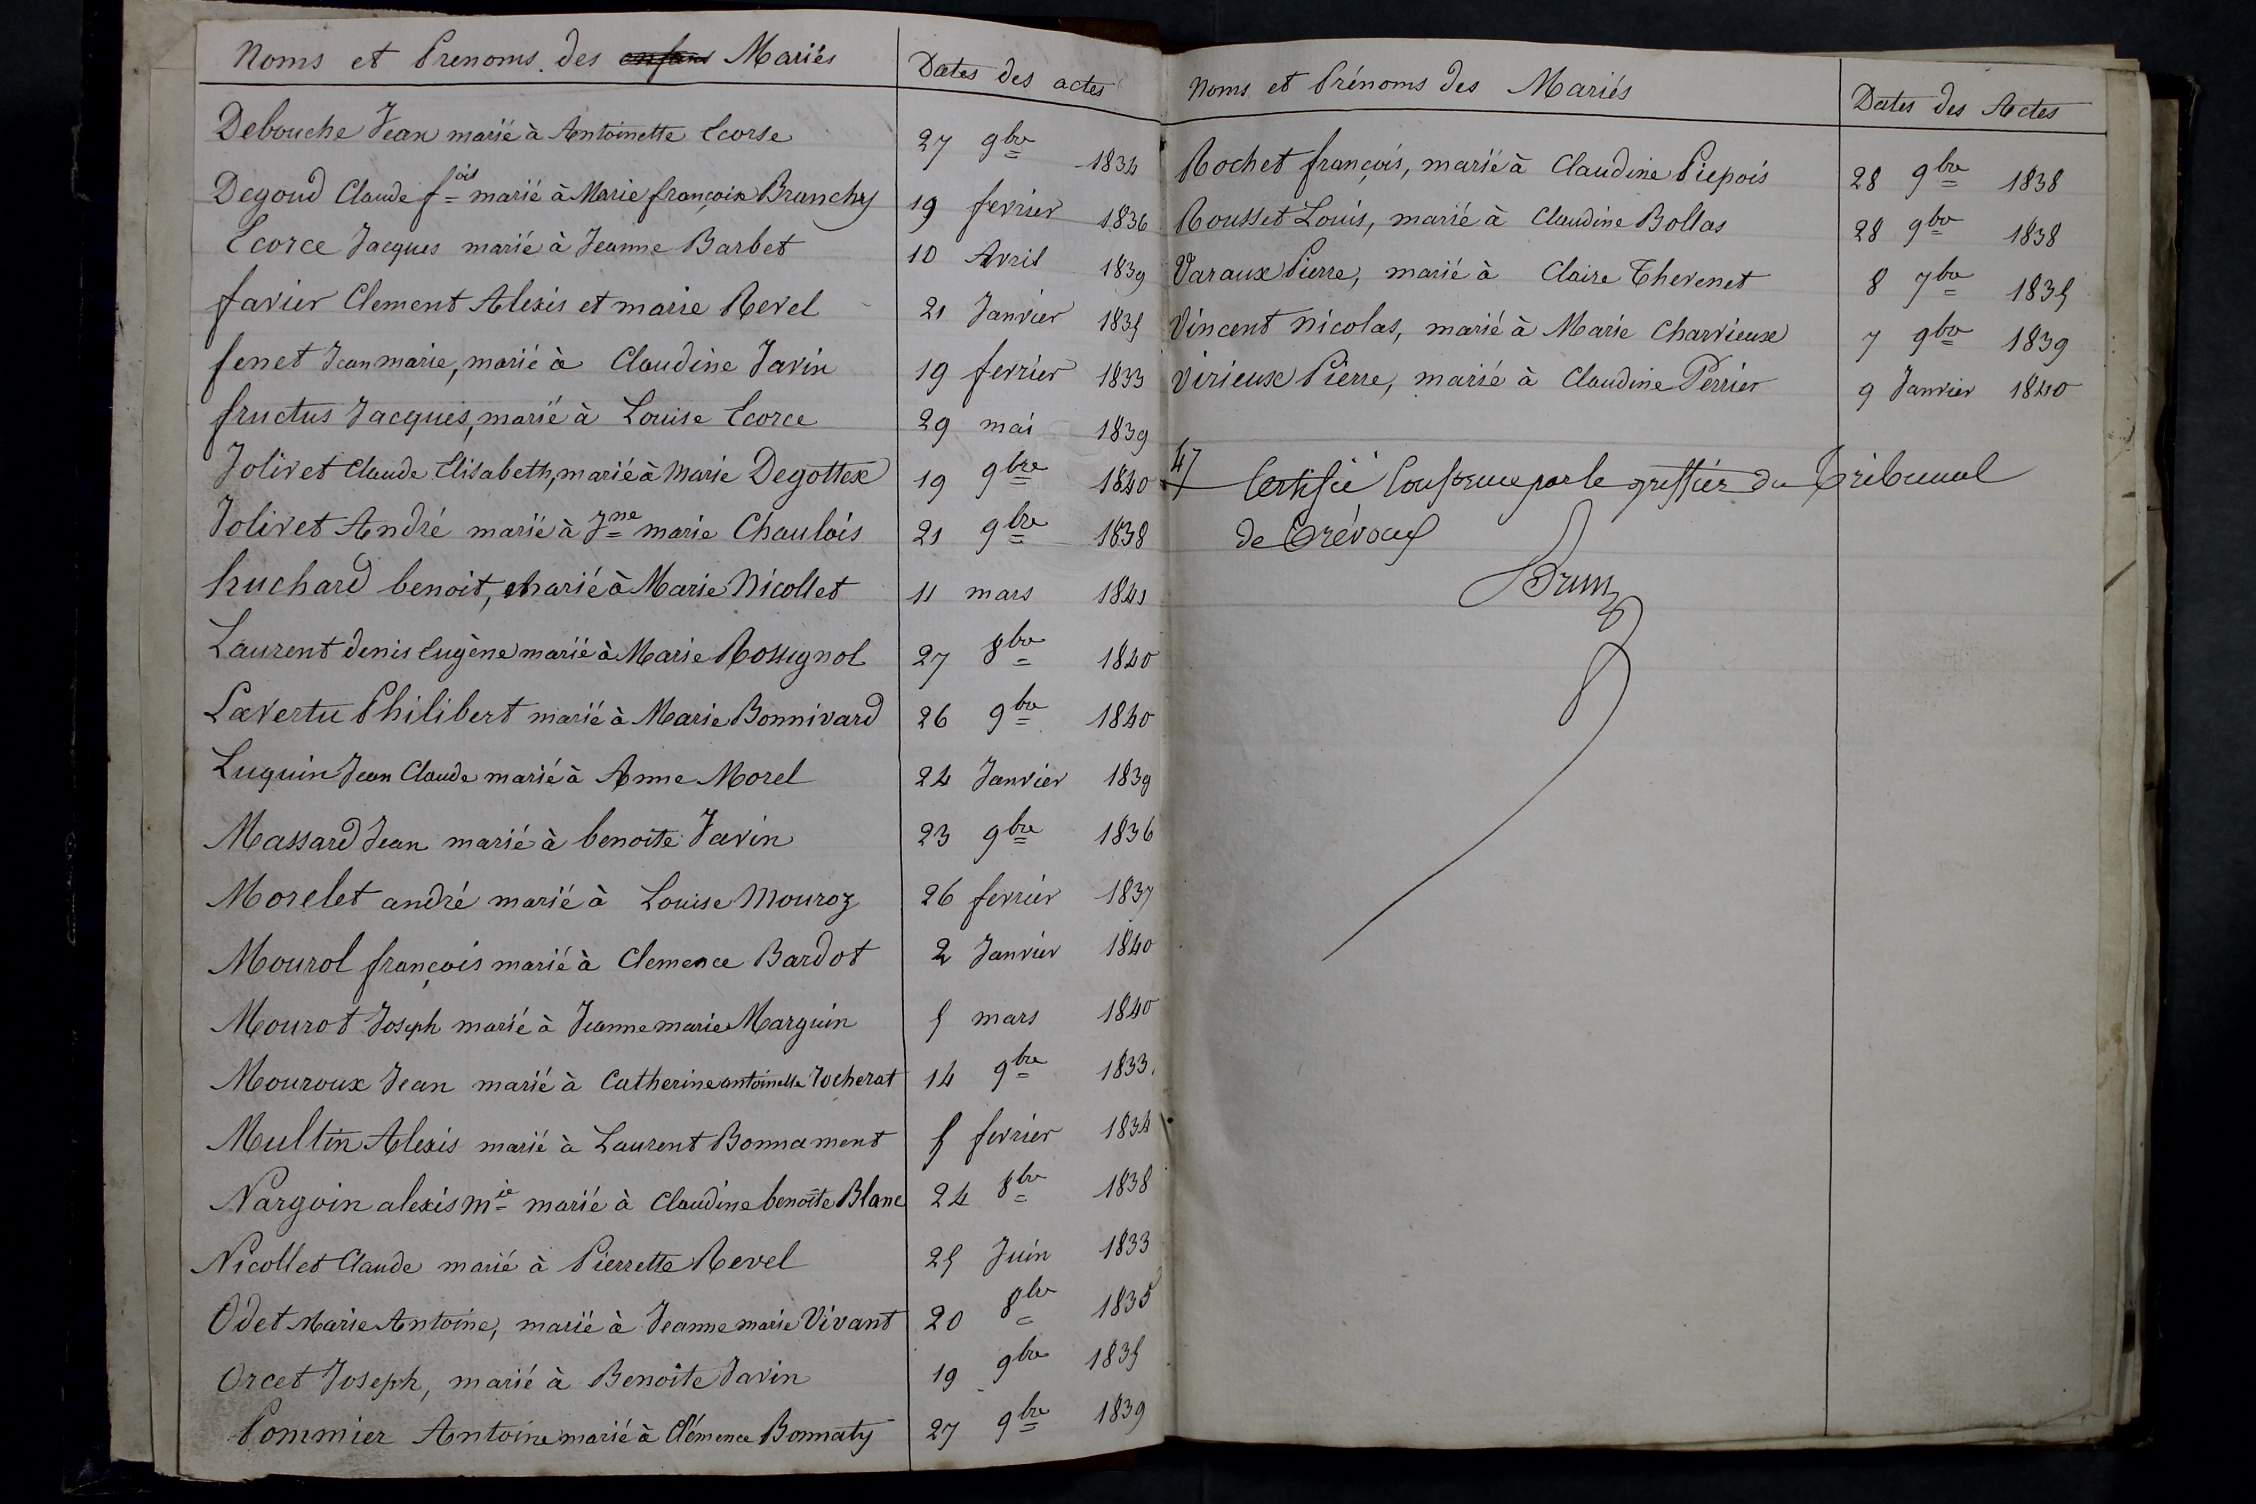 Noms et Prenoms des enfans Mariés Dates des actes
Debouche Jean marié à Antoinette Ecorse 27 9bre 1834
Degoud Claude fois marié à Marie françoise Branchy 19 fevrier 1836
Ecorce Jacques marié à Jeanne Barbet 10 Avril 1839
favier Clement Alexis et marie Revel 21 Janvier 1835
fenet Jean marie, marié à Claudine Javin 19 fevrier 1833
fructus Jacques, marié à Louise Ecorce 29 mai 1839
Jolivet Claude Elisabeth, marié à Marie Degottex 19 9bre 1840
Jolivet André marié à Jne marie Chaulois 21 9bre 1838
huchard benoit, marié à Marie Nicollet 11 mars 1841
Laurent denis Eugène marié à Marie Rossignol 27 8bre 1840
Lavertu Philibert marié à Marie Bonnivard 26 9bre 1840
Luquin Jean Claude marié à Anne Morel 24 Janvier 1839
Massard Jean marié à benoite Javin 23 9bre 1836
Morelet andré marié à Louise Mouroz 26 fevrier 1837
Mourol françois marié à Clemence Bardot 2 Janvier 1840
Mourot Joseph marié à Jeanne marie Marguin 5 mars 1840
Mouroux Jean marié à Catherine antoinette Jocherat 14 9bre 1833
Multin Alexis marié à Laurent Bonnament 5 fevrier 1834
Nargoin alexis mie marié à Claudine benoite Blanc 24 8bre 1838
Nicollet Claude marié à Pierrette Revel 25 Juin 1833
Odet Marie Antoine, marié à Jeanne marie Vivant 20 8bre 1835
Orcet Joseph, marié à Benoîte Javin 19 9bre 1835
Pommier Antoine marié à Clémence Bonnaty 27 9bre 1839
Noms et Prénoms des Mariés Dates des Actes
Rochet françois, marié à Claudine Piepois 28 9bre 1838
Rousset Louis, marié à Claudine Bollas 28 9bre 1838
Varaux Pierre, marié à Claire Thevenet 8 7bre 1835
Vincent Nicolas, marié à Marie Charvieux 7 9bre 1839
Virieux Pierre, marié à Claudine Perrier 9 Janvier 1840
47
Certifié Conforme par le greffier du Tribunal
de Trévoux